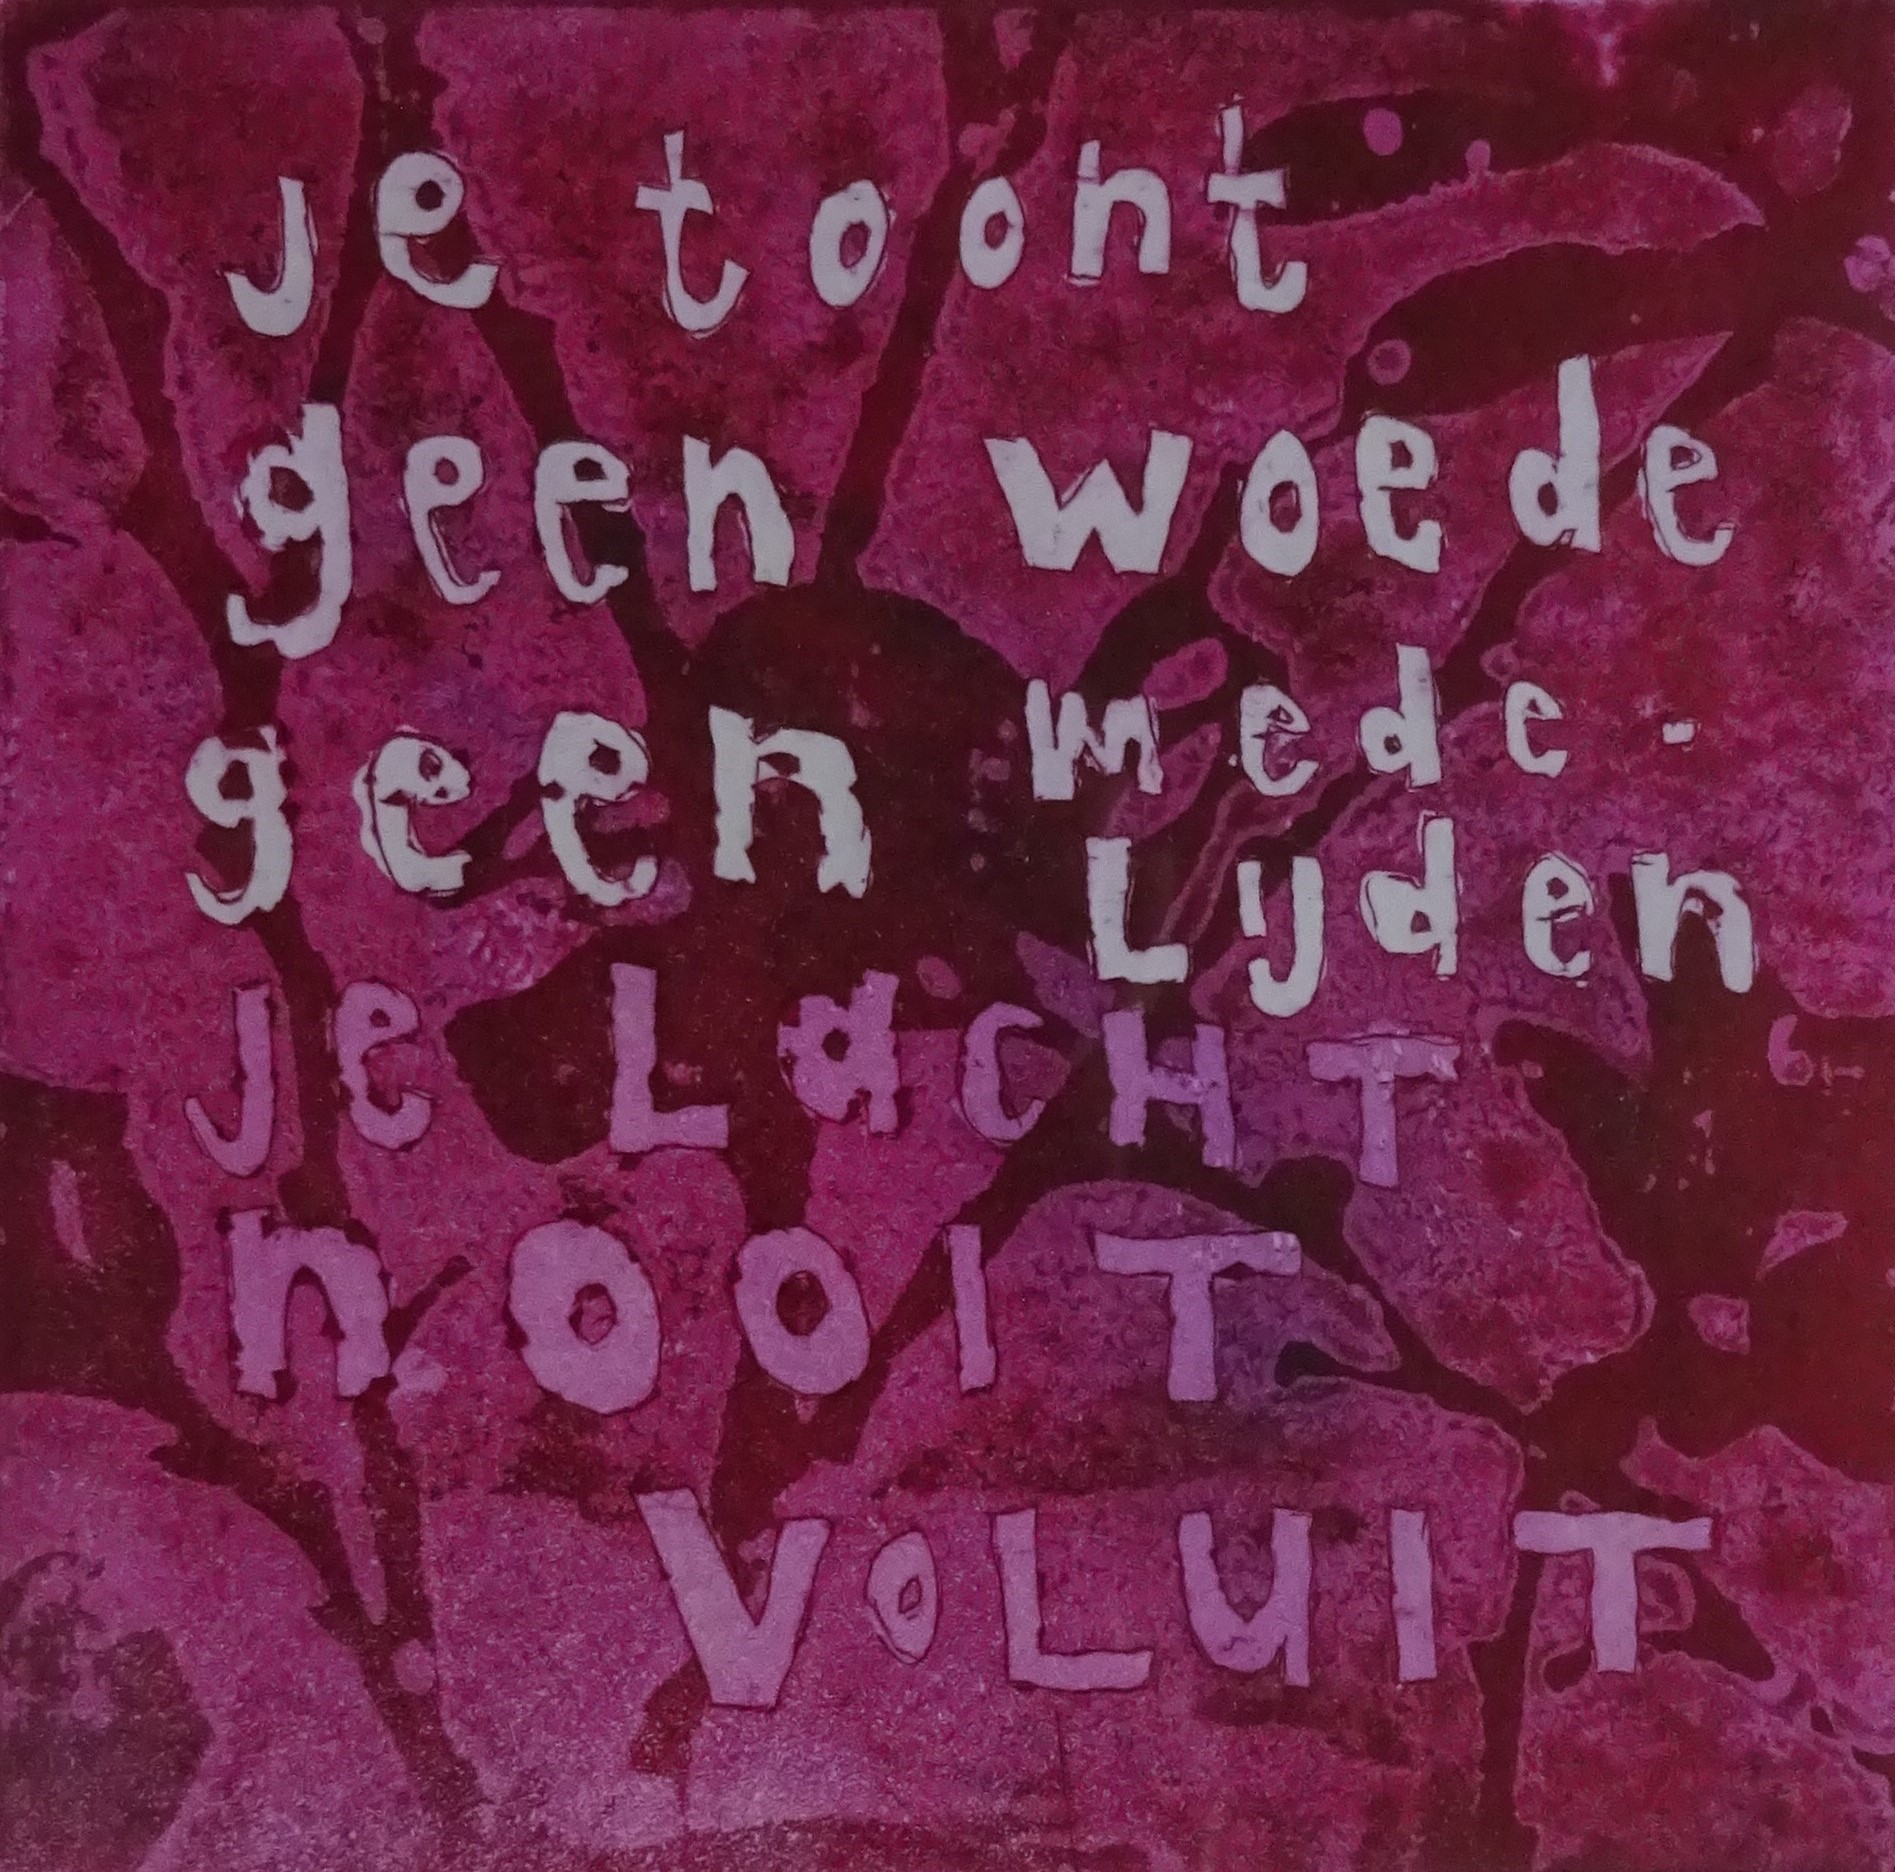 je toont
geen woede
geen mede-
Lijden
je LacHT
nOOIT
VOLUIT